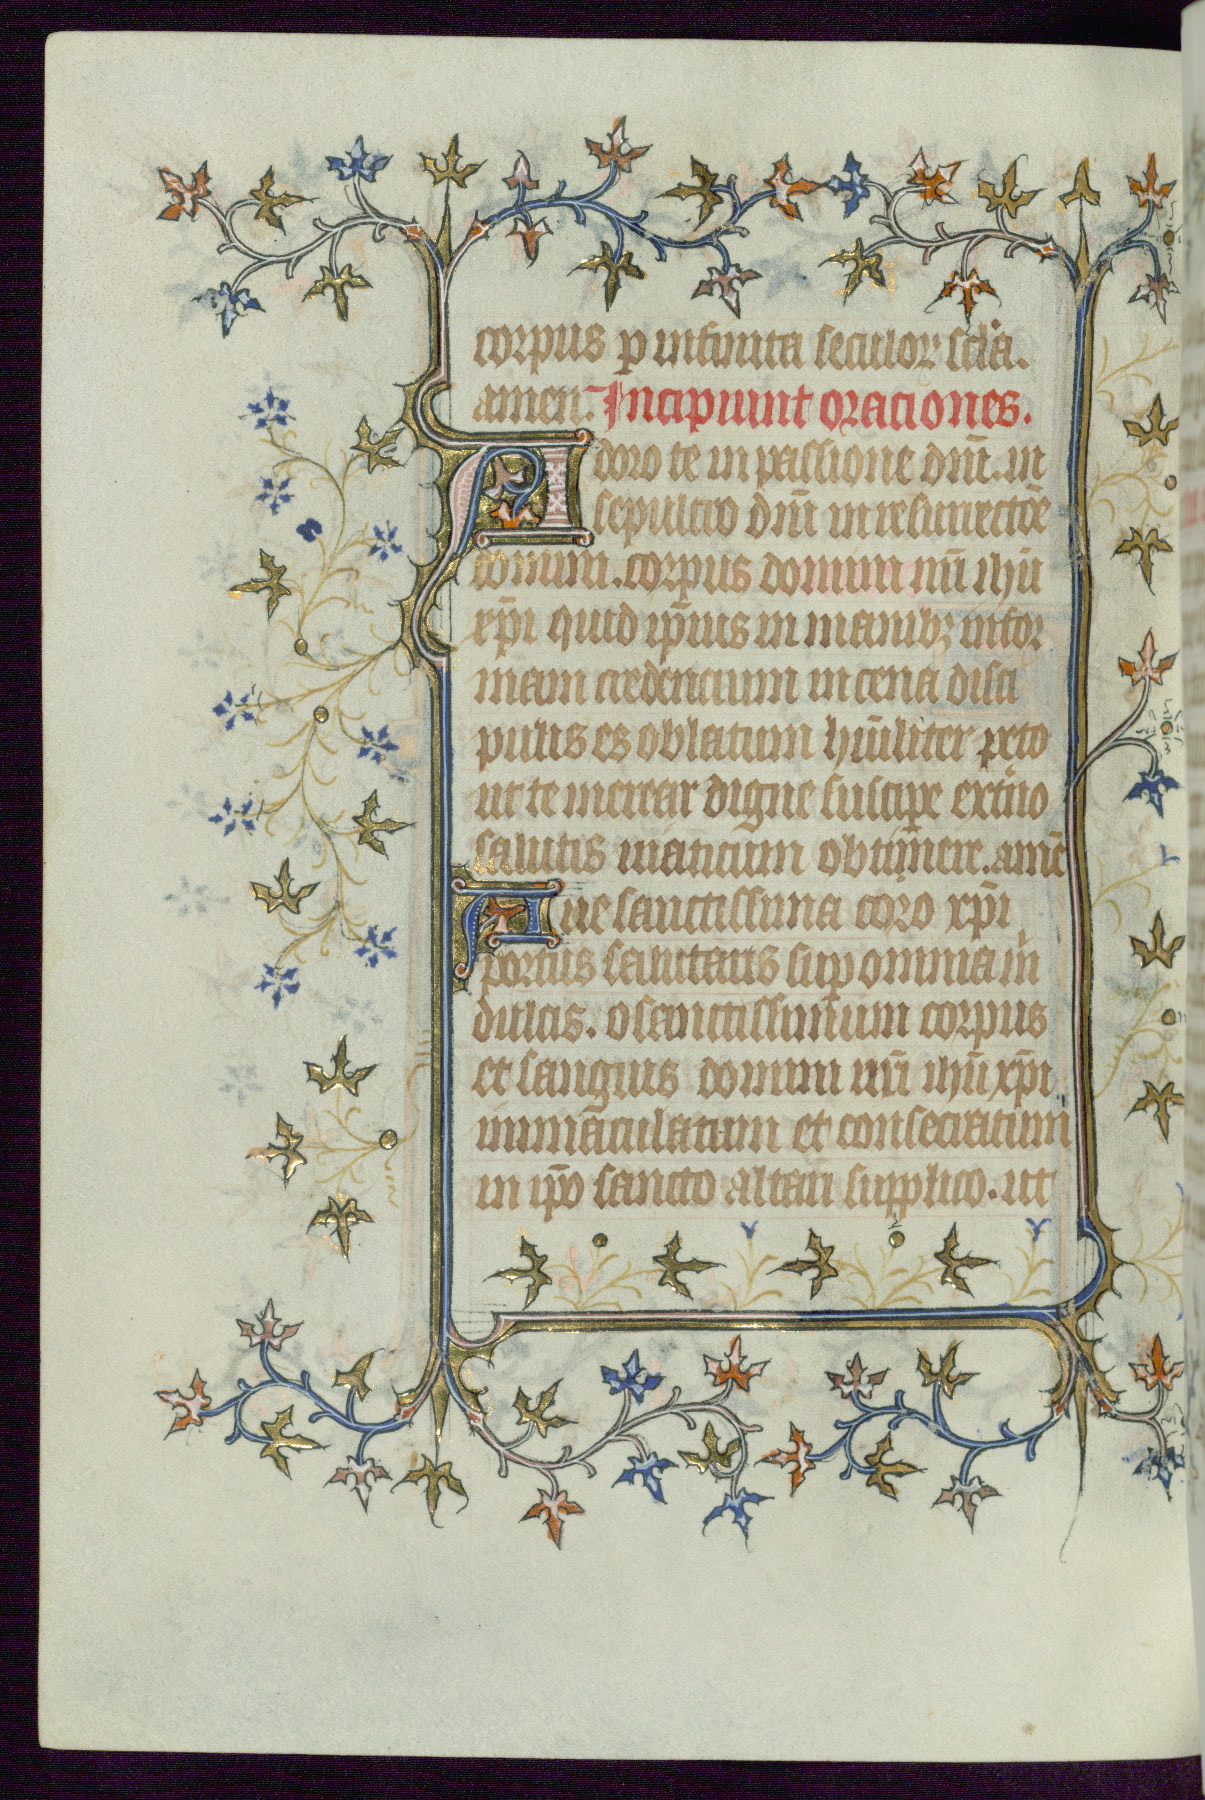 corpus p infinita seculor scla.
amen. Incipiunt oraciones.
Adoro te in passione dnī. in
sepulcro dnī in resurrectōe
domini. corpus domini nrī ihū
xp̄i quid ip̄ius in manibȝ in for
mam credencium in cena disci
pulis es oblatum hūiliter peto
ut te merear digne suscipe extīo
salutis viaticum obtinere. amē
Aue sanctissima caro xp̄i
portus salutaris sup omnia in
dulcis. o sanctissimum corpus
et sanguis domini nrī ihū xp̄i
immaculatum et consecratum
in ip̄o sancto altari supplico. ut